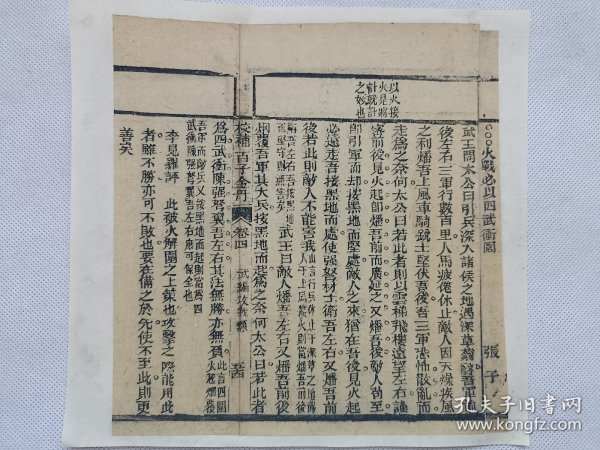 ○○○火戰必以四武衝圖 張子
武王問太公曰引兵深入諸侯之地遇深草蓊穢吾軍前
後左右三軍行數百里人馬疲倦休止敵人因天燥疾風
之利燔吾上風車騎銳士堅伏吾後吾三軍恐怖散亂而
走爲之奈何太公曰若此者則以雲梯飛樓遠望左右謹
察前後見火起即燔吾前而廣延之又燔吾後敵人苟至
即引軍而却按黑地而堅處敵人之來猶在吾後見火起
必遠走吾按黑地而處使強弩材士衛吾左右又燔吾前
後若此則敵人不能害我
武王曰敵人燔吾左右又燔吾前後
烟覆吾軍其大兵按黑地而起爲之奈何太公曰若此者
校補百子金丹 卷四 武編攻戰類
爲四武衝陳強弩翼吾左右其法無勝亦無負
此言四圍火起燔農
吾軍而敵兵又按黑地而起則當爲四
武衝陳強弩翼吾左右庶可保全也
李見羅評 此被火解圍之上策也攻擊之際能用此
者雖不勝亦可不敗也要在備之於先使不至此則更
善矣
以火接
火是將
計就計
之妙也
孔夫子旧书网
www.kongfz.com